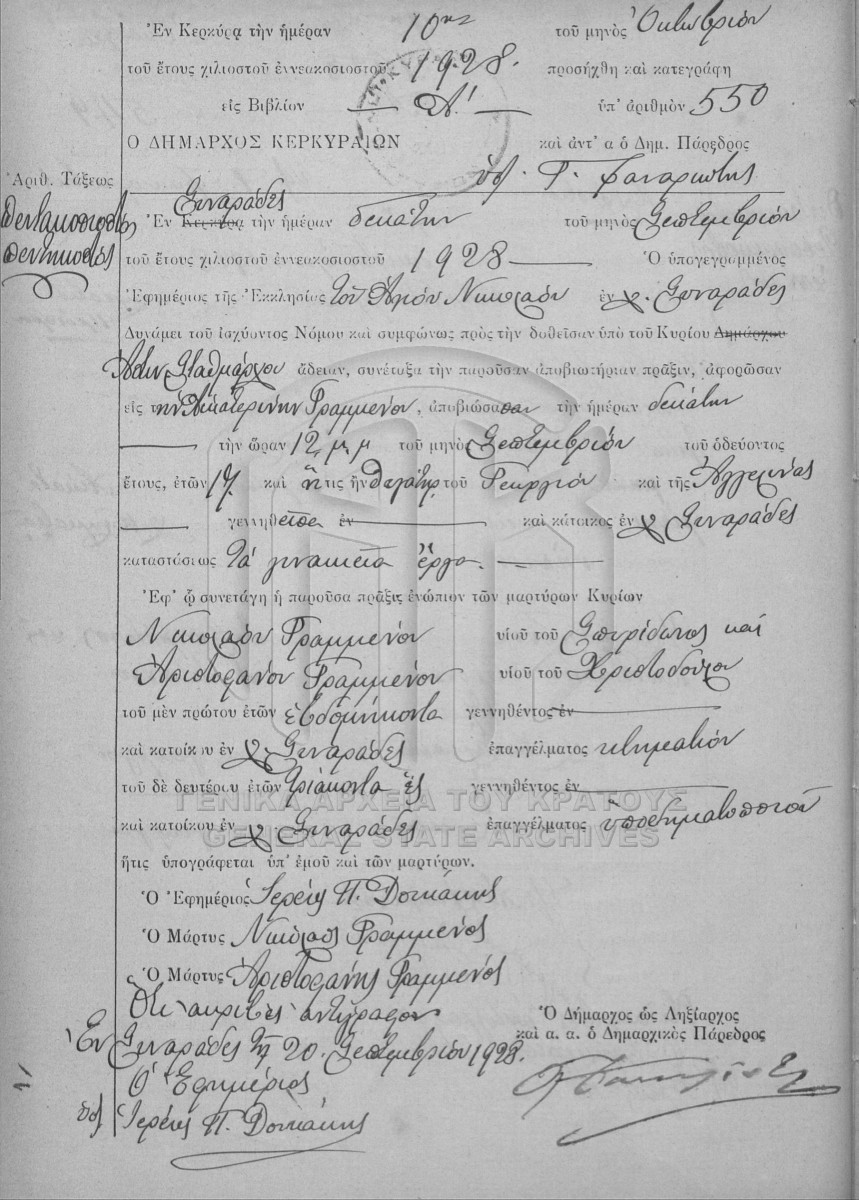 Ἐν Κερκύρᾳ τὴν ἡμέραν 10ην τοῦ μηνὸς Ὀκτωβρίου
τοῦ ἔτους χιλιοστοῦ ἐννεακοσιοστοῦ 1928. προσήχθη καὶ κατεγράφη
εἰς Βιβλίον — Α' — ὑπ' ἀριθμὸν 550
Ο ΔΗΜΑΡΧΟΣ ΚΕΡΚΥΡΑΙΩΝ καὶ ἀντ' α ὁ Δημ. Πάρεδρος
Ἀριθ. Τάξεως
πεντακοσιοστὸς
πεντηκοστὸς
Συναράδες
Ἐν Κερκύρᾳ τὴν ἡμέραν δεκάτην τοῦ μηνὸς Σεπτεμβρίου
τοῦ ἔτους χιλιοστοῦ ἐννεακοσιοστοῦ 1928 — Ὁ ὑπογεγραμμένος
Ἐφημέριος τῆς Ἐκκλησίας τοῦ Ἁγίου Νικολάου ἐν χ. Συναράδες
Δυνάμει τοῦ ἰσχύοντος Νόμου καὶ συμφώνως πρὸς τὴν δοθεῖσαν ὑπὸ τοῦ Κυρίου Δημάρχου
Ἀστυν. Σταθμάρχου ἄδειαν, συνέταξα τὴν παροῦσαν ἀποβιωτήριαν πρᾶξιν, ἀφορῶσαν
εἰς τὴν Αἰκατερίνην Γραμμένου, ἀποβιώσασαν τὴν ἡμέραν δεκάτην
— τὴν ὥραν 12 μ μ τοῦ μηνὸς Σεπτεμβρίου τοῦ ὁδεύοντος
ἔτους, ἐτῶν 17. καὶ ἥτις ἦν θυγάτηρ τοῦ Γεωργίου καὶ τῆς Ἀγγελίνας
— γεννηθεῖσα ἐν — καὶ κάτοικος ἐν χ Συναράδες
καταστάσεως τὰ γυναικεῖα ἔργα. —
Ἐφ' ᾧ συνετάγη ἡ παροῦσα πρᾶξις ἐνώπιον τῶν μαρτύρων Κυρίων
Νικολάου Γραμμένου υἱοῦ τοῦ Σπυρίδωνος καὶ
Ἀριστοφάνου Γραμμένου υἱοῦ τοῦ Χριστοδούλου
τοῦ μὲν πρώτου ἐτῶν ἑβδομήκοντα γεννηθέντος ἐν —
καὶ κατοίκου ἐν χ Συναράδες ἐπαγγέλματος κτηματίου
τοῦ δὲ δευτέρου ἐτῶν τριάκοντα ἓξ γεννηθέντος ἐν —
ΓΕΝΙΚΑ ΑΡΧΕΙΑ ΤΟΥ ΚΡΑΤΟΥΣ
καὶ κατοίκου ἐν χ Συναράδες ἐπαγγέλματος ὑποδηματοποιοῦ
GENERAL STATE ARCHIVES
ἥτις ὑπογράφεται ὑπ' ἐμοῦ καὶ τῶν μαρτύρων.
Ὁ Ἐφημέριος Ἱερεὺς Π.
Ὁ Μάρτυς Νικόλαος Γραμμένος
Ὁ Μάρτυς Ἀριστοφάνης Γραμμένος
Ὅτι ἀκριβὲς ἀντίγραφον
Ἐν Συναράδες τῇ 20. Σεπτεμβρίου 1928.
Ὁ Ἐφημέριος
Ἱερεὺς Π.
Ὁ Δήμαρχος ὡς Ληξίαρχος
καὶ α. α. ὁ Δημαρχικὸς Πάρεδρος